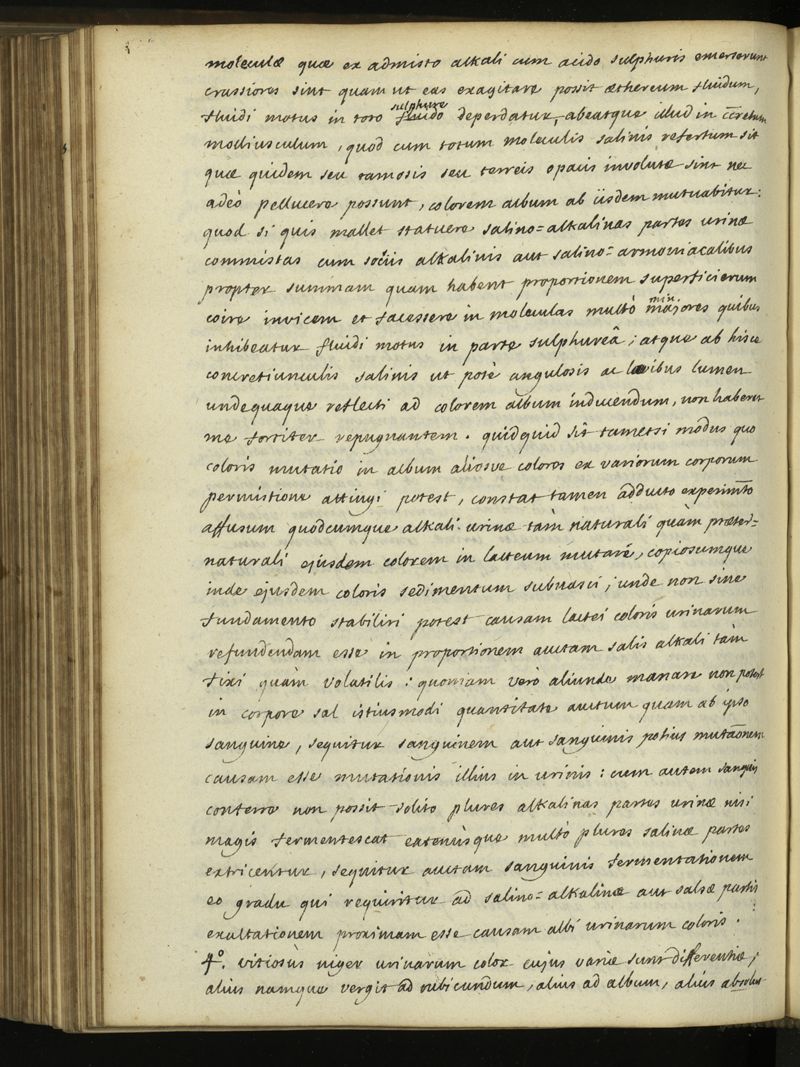 moleculæ quæ ex admisto alkali cum acido sulphuris emerserunt
crassiores sint quam ut eas exagitare possit æthereum fluidum,
fluidi motus in toto fluido sulphure deperdatur, abeatque illud in
molliusculum, quod cum totum moleculis salinis refertum sit
quæ quidem seu ramosis seu terreis opacis involutæ sint nec
adeò pellucere possunt, colorem album ab iisdem mutuabitur:
quod si quis mallet statuere salino=alkalinas partes urinæ
commistas cum sociis alkalinis aut salino=armoniacalibus
propter summam quam habent proportionem superficierum
coire invicem et facessere in moleculas multò majores min quibus
inhibeatur fluidi motus in parte sulphureâ; atque ab hisce
concretiunculis salinis ut potè angulosis ac lævibus lumen
undequaque reflecti ad colorem album inducendum, non haberet
me fortiter repugnantem. quidquid sit tametsi modus quo
coloris mutatio in album aliosve colores ex variorum corporum
permistione attingi potest, constat tamen adducto experim̄to
affusum quodcumque alkali urinæ tàm naturali quàm præter=
naturali ejusdem colorem in lacteum mutare, copiosumque
inde ejusdem coloris sedimentum subnasci; unde non sine
fundamento stabiliri potest causam lactei coloris urinarum
refundendam esse in proportionem auctam salis alkali tàm
fixi quàm volatilis: quoniam verò aliunde manare non potest
in corpore sal istiusmodi quantitate auctum quam ab ipso
sanguine, sequitur sanguinem aut sanguinis potius mutāonem
causam esse mutationis illius in urinis: cum autem sanguis
conferre non possit solito plures alkalinas partes urinæ nisi
magis fermentescat eatenùsque multò plures salinæ partes
extricentur, sequitur auctam sanguinis fermentationem
eo gradu qui requiritur ad salino=alkalinæ aut salsæ partis
exaltationem proximam esse causam albi urinarum coloris.
4º. vitiosus niger urinarum color cujus variæ sunt differentiæ;
alius namque vergit ad rubicundum, alius ad album, alius absolut